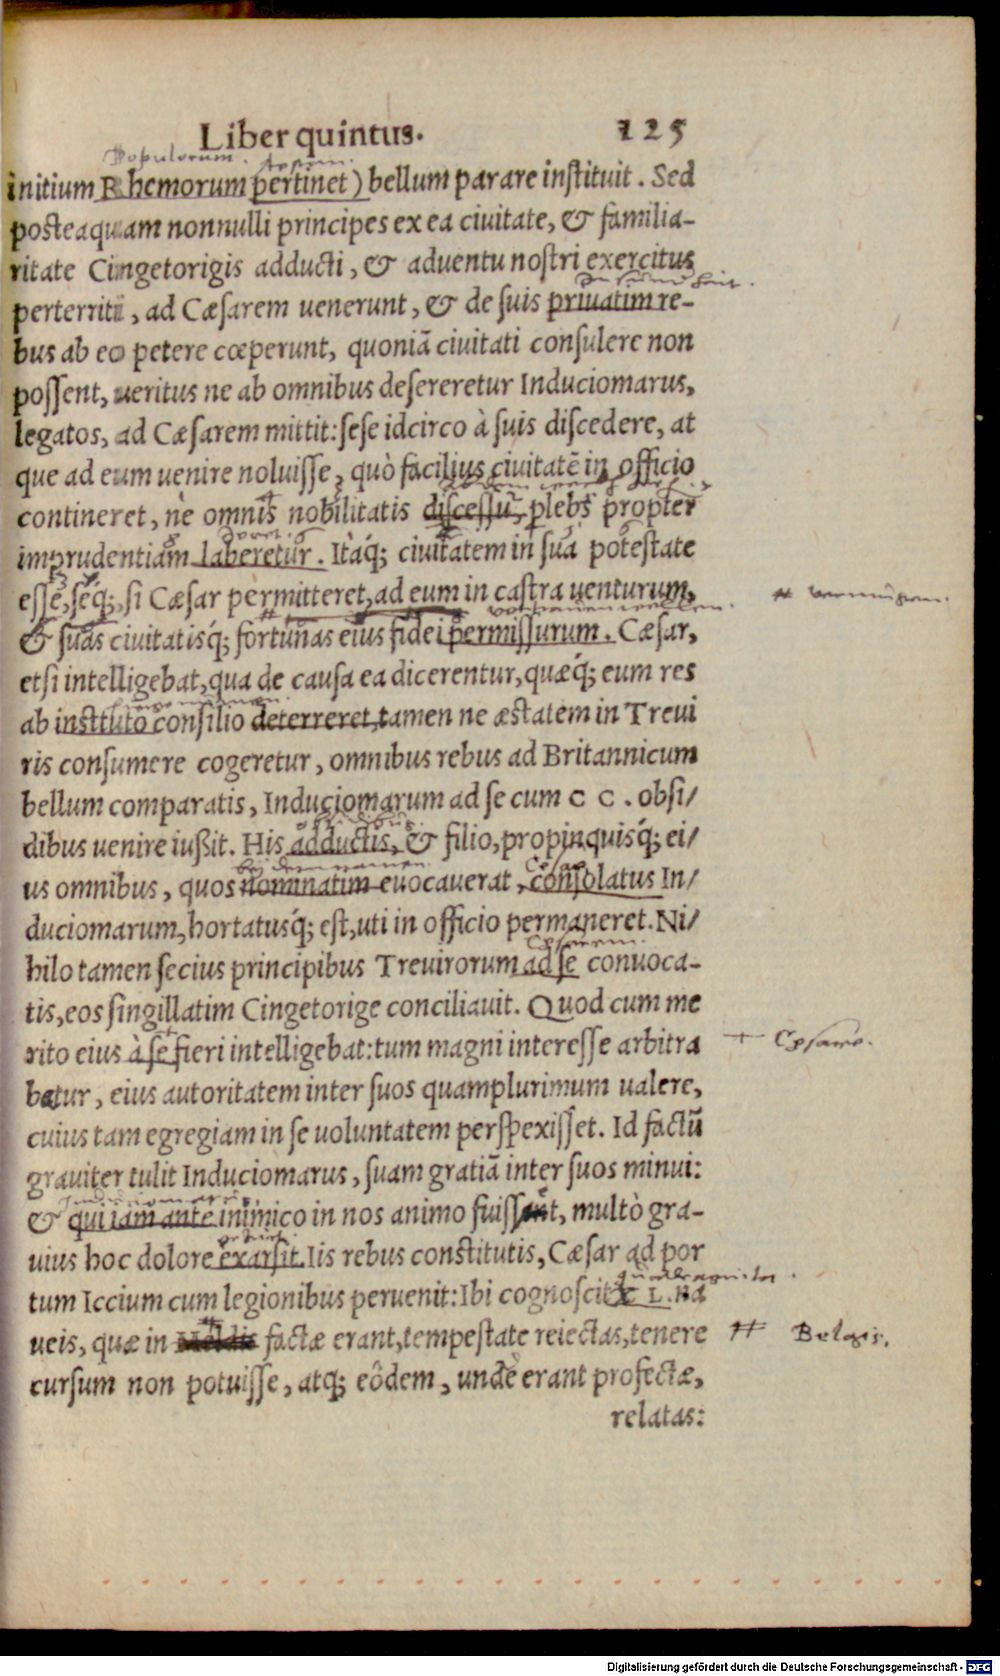 Liber quintus. 125
Populorum.
initium Rhemorum pertinet) bellum parare instituit. Sed
posteaquam nonnulli principes ex ea ciuitate, & familia-
ritate Cingetorigis adducti, & aduentu nostri exercitus
perterriti, ad Cæsarem uenerunt, & de suis priuatim re-
bus ab eo petere cœperunt, quoniã ciuitati consulere non
possent, ueritus ne ab omnibus desereretur Induciomarus,
legatos, ad Cæsarem mittit: sese idcirco à suis discedere, at
que ad eum uenire noluisse, quò facilius ciuitatẽ in officio
contineret, ne omnis nobilitatis discessu, plebs propter
imprudentiam laberetur. Itaq́; ciuitatem in sua potestate
esse, seq́;, si Cæsar permitteret, ad eum in castra uenturum,
& suas ciuitatisq́; fortunas eius fidei permissurum. Cæsar,
etsi intelligebat, qua de causa ea dicerentur, quæq́; eum res
ab instituto consilio deterreret, tamen ne æstatem in Treui
ris consumere cogeretur, omnibus rebus ad Britannicum
bellum comparatis, Induciomarum ad se cum C C. obsi/
dibus uenire iußit. His adductis, & filio, propinquisq́; ei/
us omnibus, quos nominatim euocauerat, consolatus In/
duciomarum, hortatusq́; est, uti in officio permaneret. Ni/
hilo tamen secius principibus Treuirorum ad se conuoca-
tis, eos singillatim Cingetorige conciliauit. Quod cum me
rito eius à se fieri intelligebat: tum magni interesse arbitra
+ Cæsare.
batur, eius autoritatem inter suos quamplurimum ualere,
cuius tam egregiam in se uoluntatem perspexisset. Id factũ
grauiter tulit Induciomarus, suam gratiã inter suos minui:
Induciomarus.
& qui iam ante inimico in nos animo fuissent, multò gra-
uius hoc dolore exarsit. Iis rebus constitutis, Cæsar ad por
tum Iccium cum legionibus peruenit: Ibi cognoscit X L. Na
ueis, quæ in Meldis factæ erant, tempestate reiectas, tenere
# Belgis.
cursum non potuisse, atq; eôdem, unde erant profectæ,
relatas:
Digitalisierung gefördert durch die Deutsche Forschungsgemeinschaft - DFG